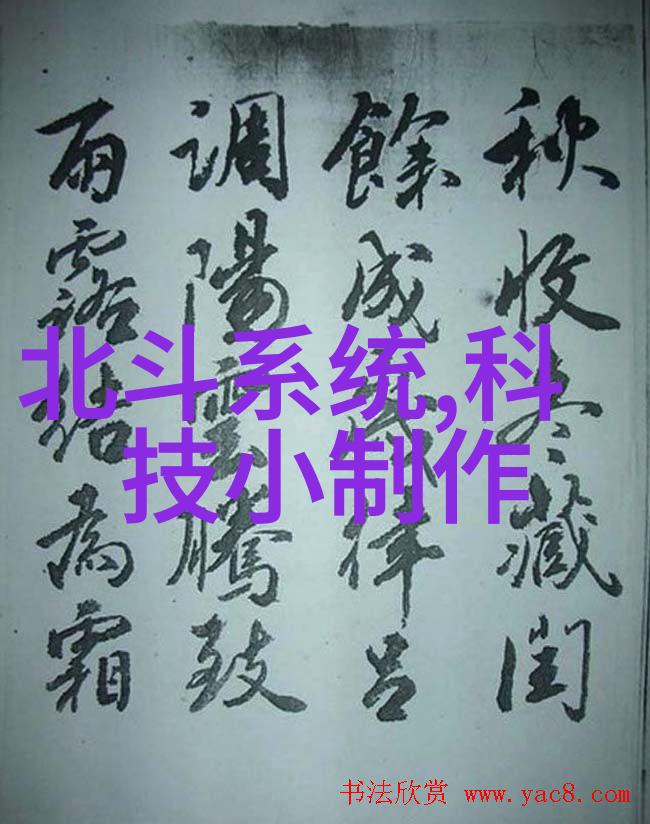 秋收冬藏閏
餘成歲律呂
調陽雲騰致
雨露結為霜
北斗系统,科
技小制作
书法欣赏 www.yac8.com